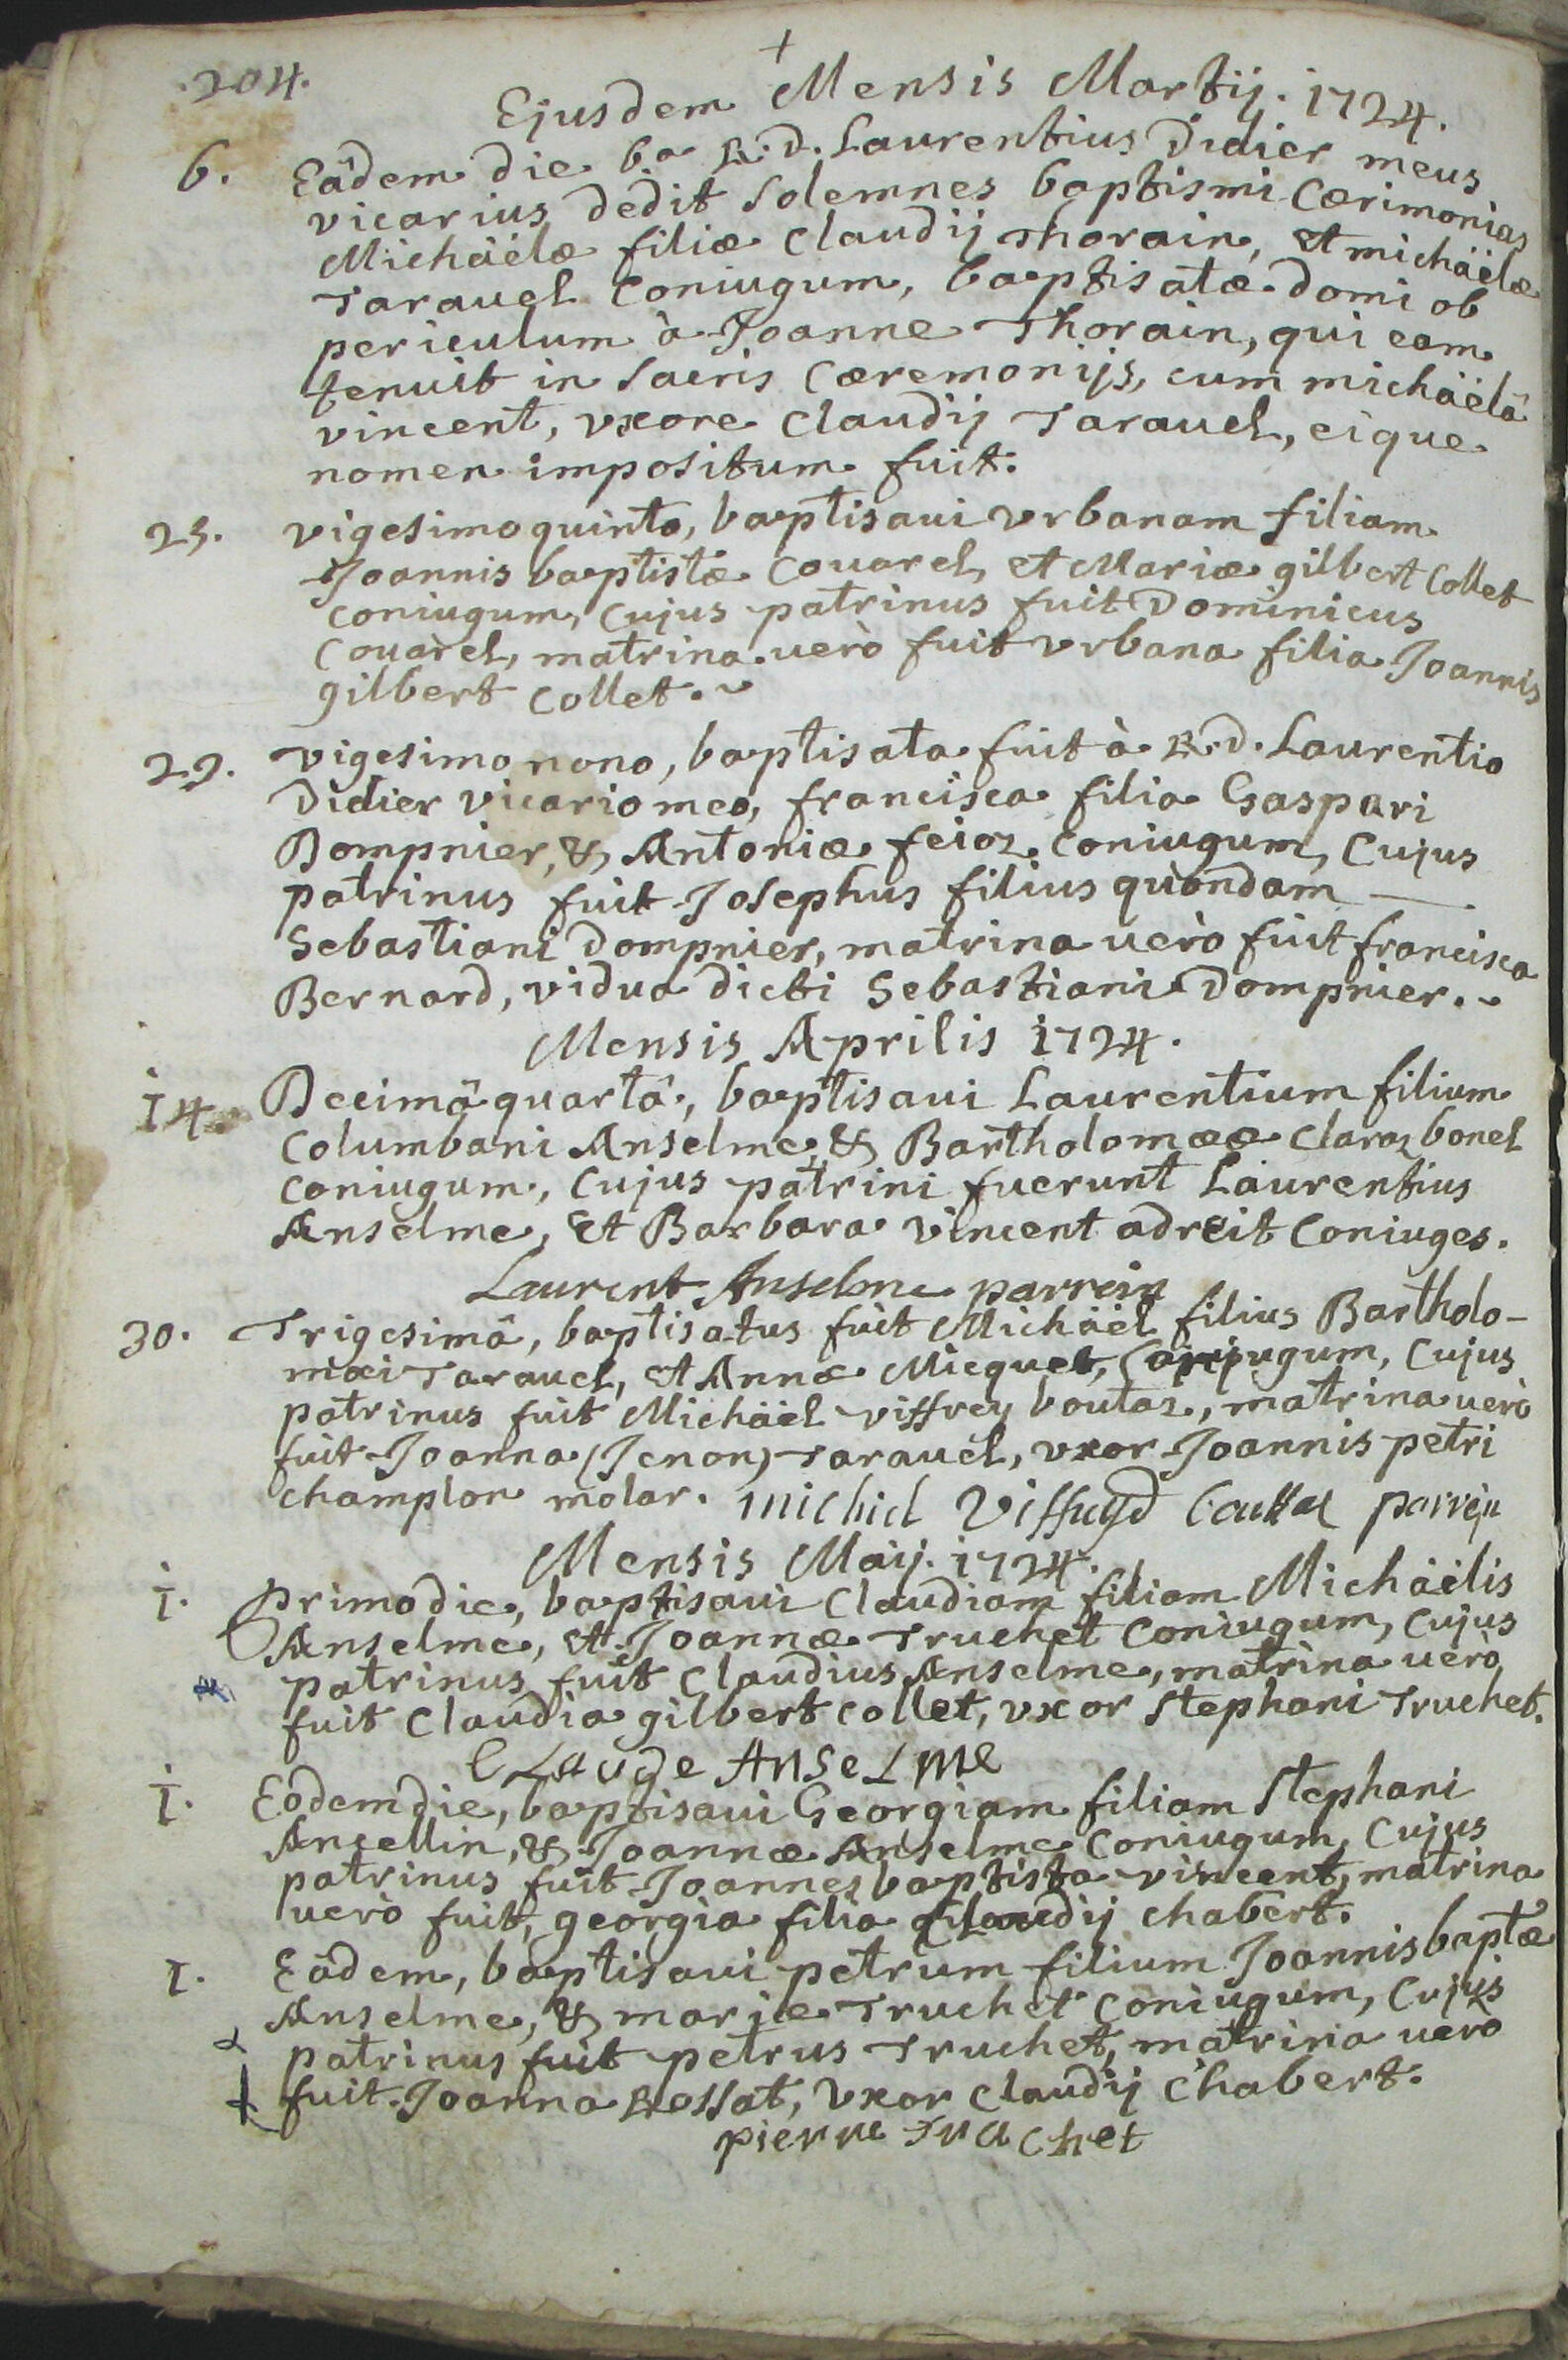 204.
+
Ejusdem Mensis Martij. 1724.
6. Eâdem die 6.a R.D. Laurentius Didier meus
vicarius dedit solemnes baptismi cærimonias
Michäélæ filiæ Claudij Thorain, et michäélæ
Tarauel coniugum, baptisatæ domi ob
periculum à Joanne Thorain, qui eam
tenuit in sacris cæremonijs, cum michäélâ
vincent, vxore Claudij Tarauel, eique
nomen impositum fuit.
25. vigesimo quinto, baptisaui vrbanam filiam
Joannis baptistæ Couarel, et Mariæ gilbert Collet
coniugum, Cujus patrinus fuit Dominicus
Couarel, matrina uerò fuit vrbana filia Joannis
gilbert Collet.
29. vigesimo nono, baptisata fuit à R.D. Laurentio
Didier vicario meo, francisca filia Gaspari
Dompnier, & Antoniæ feioz coniugum, Cujus
patrinus fuit Josephus filius quondam
Sebastiani Dompnier, matrina uerò fuit francisca
Bernard, vidua dicti Sebastiani Dompnier.
Mensis Aprilis 1724.
14. Decimâ quartâ, baptisaui Laurentium filium
Columbani Anselme, & Bartholomææ Claraz bonel
coniugum, Cujus patrini fuerunt Laurentius
Anselme, et Barbara vincent adreit coniuges.
Laurent Anselme parrein
30. Trigesimâ, baptisatus fuit Michäel filius Bartholo-
mæi Tarauel, et Annæ Micquet, Conjugum, Cujus
patrinus fuit Michäel viffrey boutaz, matrina uerò
fuit Joanna (Jenon) Tarauel, vxor Joannis petri
champlon molar. michiel parrein
Mensis Maij. 1724.
1. Primo die, baptisaui Claudiam filiam Michäelis
Anselme, et Joannæ Truchet coniugum, Cujus
patrinus fuit Claudius Anselme, matrina uerò
fuit Claudia gilbert collet, vxor Stephani Truchet.
CLaude AnSeLme
1. Eodem die, baptisaui Georgiam filiam Stephani
Ancellin, & Joannæ Anselme coniugum, Cujus
patrinus fuit Joannes baptista vincent, matrina
uerò fuit, georgia filia Claudij chabert.
1. Eâdem, baptisaui petrum filium Joannis baptæ
Anselme, & mariæ Truchet coniugum, Cujus
patrinus fuit petrus Truchet, matrina uerò
fuit Joanna Rossat, vxor Claudij Chabert.
pierre Truchet